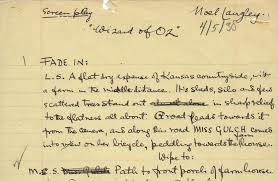 Screen play
Noel Langley..
4/5/38
"Wizard of Oz"
1. FADE IN:
L.S. A flat dry expense of Kansas countryside, with
a farm in the middle distance. Its sheds, silo and few
scattered trees stand out in sharp relief
to the flatness all about. Road leads towards it
from the camera, and along has road MISS GULCH farm comes
into view on her bicycle, peddling towards the house.
Wipe to:
M.C.S. Path to front porch of farmhouse.